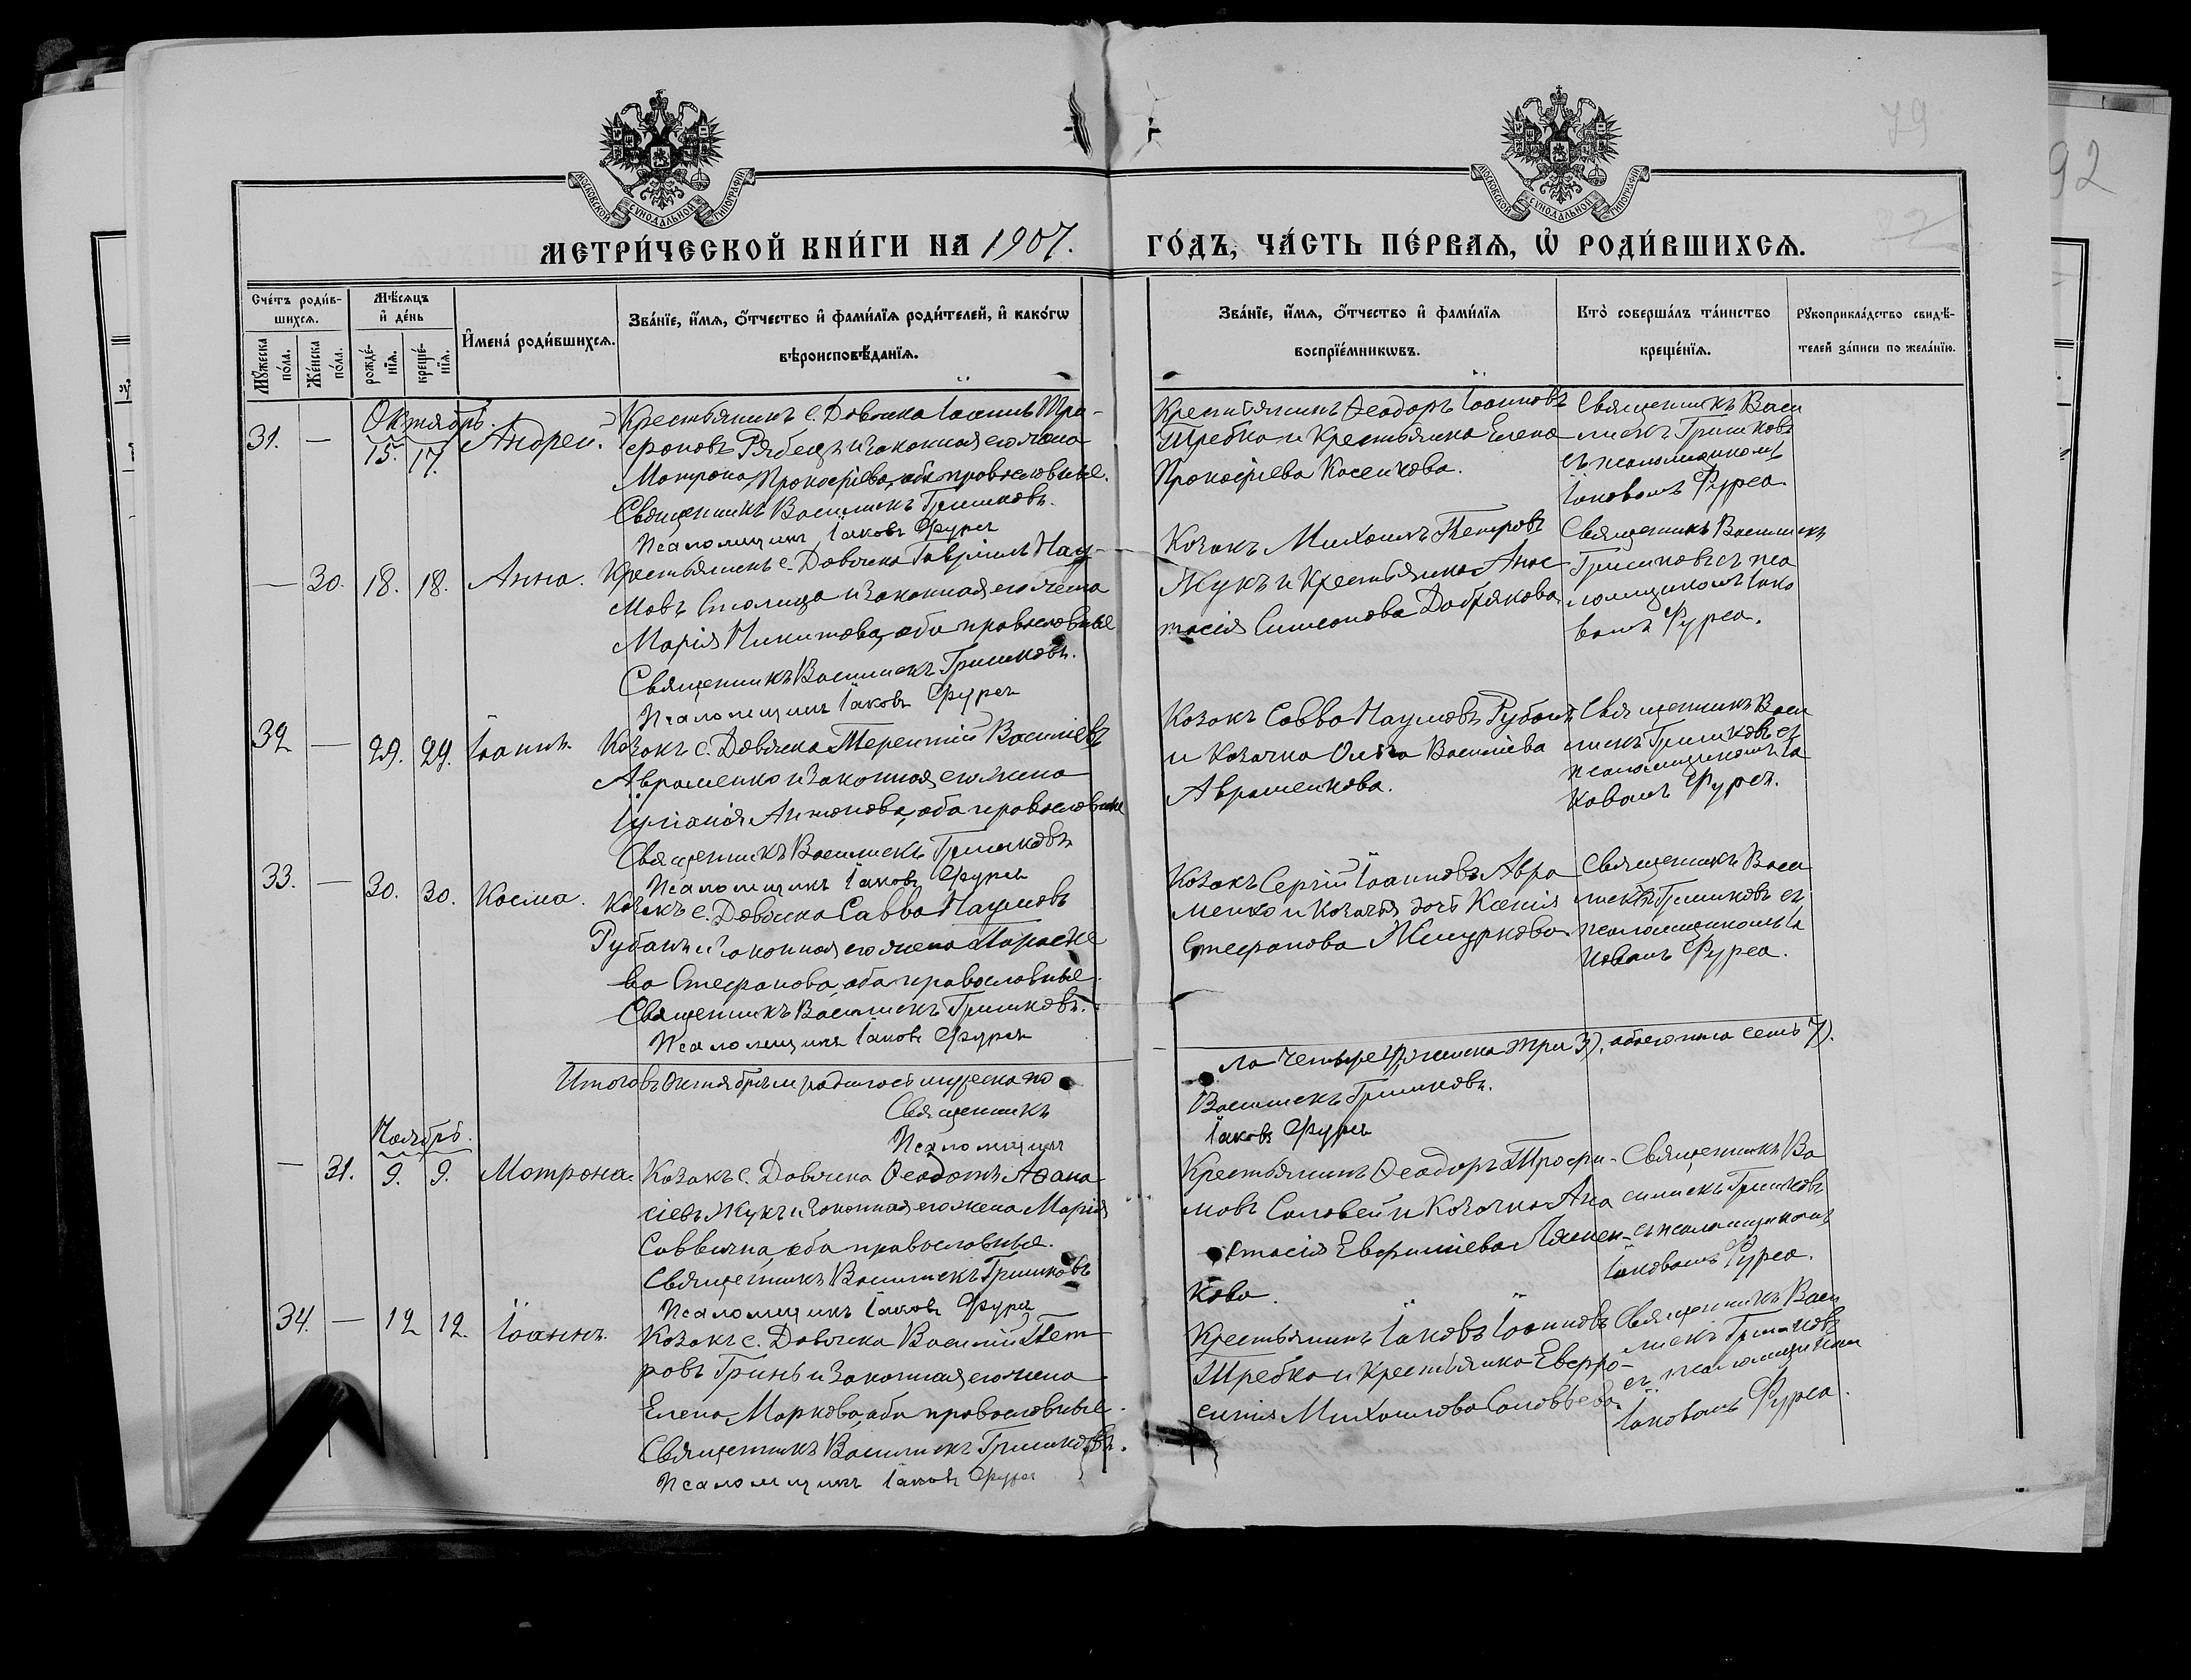 79
92
82
МОСКОВСКОЙ СѴНОДАЛЬНОЙ ТИПОГРАФІИ
МОСКОВСКОЙ СѴНОДАЛЬНОЙ ТИПОГРАФІИ
МЕТРИ́ЧЕСКОЙ КНИ́ГИ НА 1907. ГО́ДЪ, ЧА́СТЬ ПЕ́РВАѦ, Ѡ҆ РОДИ́ВШИХСѦ.
Сче́тъ роди́в-
шихсѧ.
Мꙋ́жеска по́ла.
Же́нска по́ла.
Мѣ́сѧцъ
и҆ де́нь
рожде́-
нїѧ.
креще́-
нїѧ.
И҆мена̀ роди́вшихсѧ.
Зва́нїе, и҆́мѧ, ѻ҆́тчество и҆ фами́лїѧ роди́телей, и҆ како́гѡ
вѣроисповѣ́данїѧ.
Зва́нїе, и҆́мѧ, ѻ҆́тчество и҆ фами́лїѧ
воспрїе́мникѡвъ.
Кто̀ соверша́лъ та́инство
креще́нїѧ.
Рꙋкоприкла́дство свидѣ́-
телей за́писи по жела́нїю.
Октябрь.
31. — 15. 17. Андрей.
Крестьянинъ с. Довжика Іоаннъ Три-
фоновъ Рябецъ и законная его жена
Матрона Прокофіева, оба православные.
Священникъ Василискъ Гришковъ.
Псаломщикъ Іаковъ Фурса
Крестьянинъ Ѳеодоръ Іоанновъ
Шребко и Крестьянка Елена
Прокофіева Косенкова.
Священникъ Васи
лискъ Гришковъ
съ псаломщикомъ
Іаковомъ Фурса.
— 30. 18. 18. Анна.
Крестьянинъ с. Довжика Гавріилъ Нау-
мовъ Столица и законная его жена
Марія Никитова, оба православные
Священникъ Василискъ Гришковъ.
Псаломщикъ Іаковъ Фурса
Козакъ Михаилъ Петровъ
Жукъ и Крестьянка Анас
тасія Симеонова Добрякова
Священникъ Василискъ
Гришковъ съ пса
ломщикомъ Іако
вомъ Фурса.
32 — 29. 29. Іоаннъ.
Козакъ с. Довжика Терентій Василіевъ
Авраменко и законная его жена
Іуліанія Антонова, оба православные
Священникъ Василискъ Гришковъ
Псаломщикъ Іаковъ Фурса
Козакъ Савва Наумовъ Рубанъ
и Козачка Ольга Василіева
Авраменкова.
Священникъ Васи
лискъ Гришковъ съ
псаломщикомъ Іа
ковомъ Фурса.
33. — 30. 30. Косма.
Козакъ с. Довжика Савва Наумовъ
Рубанъ и законная его жена Параске
ва Стефанова, оба православные.
Священникъ Василискъ Гришковъ.
Псаломщикъ Іаковъ Фурса
Козакъ Сергій Іоанновъ Авра
менко и Козачья дочь Ксенія
Стефанова Жмуркова.
Священникъ Васи
лискъ Гришковъ съ
псаломщикомъ Іа
ковомъ Фурса.
Итого въ Октябрѣ м. родилось мужеска по
ла четыре 4), женска три 3), обоего пола семь 7).
Священникъ Василискъ Гришковъ.
Псаломщикъ Іаковъ Фурса
Ноябрь.
— 31. 9. 9. Матрона.
Козакъ с. Довжика Ѳеодотъ Аѳана
сіевъ Жукъ и законная его жена Марія
Саввична, оба православные.
Священникъ Василискъ Гришковъ
Псаломщикъ Іаковъ Фурса
Крестьянинъ Ѳеодоръ Трофи-
мовъ Соловей и Козачка Ана
стасія Евфиміева Ляшен-
кова.
Священникъ Ва
силискъ Гришковъ
съ псаломщикомъ
Іаковомъ Фурса.
34. — 12 12. Іоаннъ.
Козакъ с. Довжика Василій Пет
ровъ Гринь и законная его жена
Елена Маркова, оба православные.
Священникъ Василискъ Гришковъ.
Псаломщикъ Іаковъ Фурса
Крестьянинъ Іаковъ Іоанновъ
Шребко и Крестьянка Евфро-
синія Михаилова Соловьева.
Священникъ Васи
лискъ Гришковъ
съ псаломщикомъ
Іаковомъ Фурса.